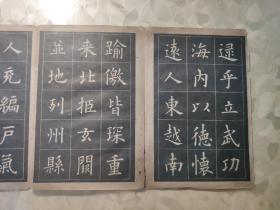 逮乎立武功
海內以德懷
遠人東越南
踰徼皆琛重
来北拒玄闕
並地列州縣
人充編戶氣